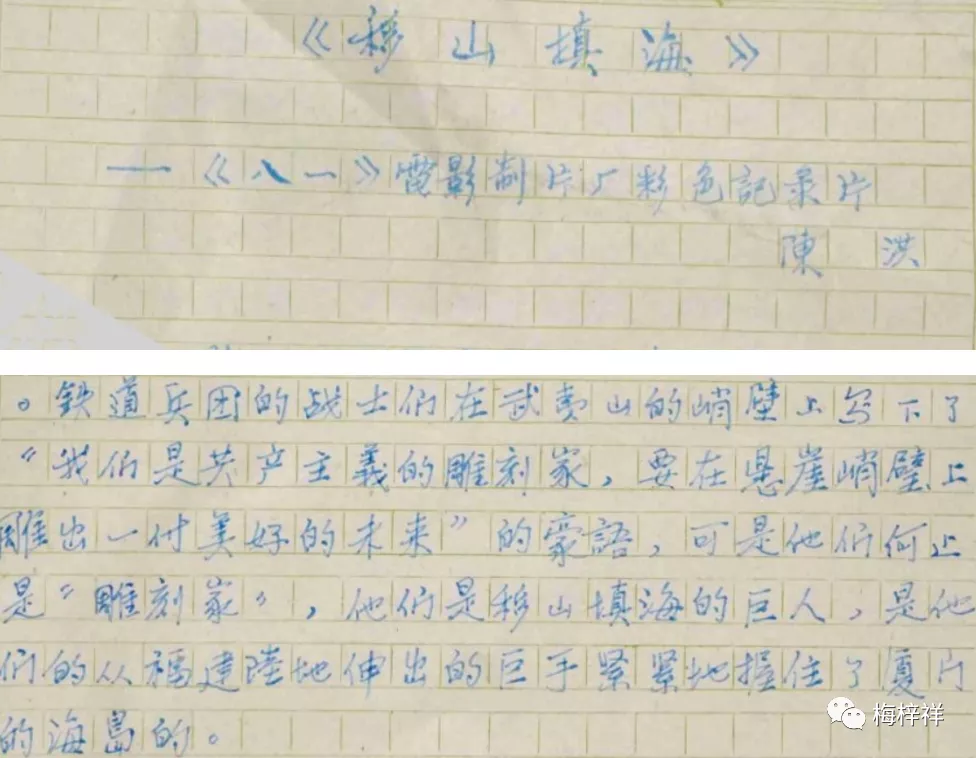 《移山填海》
——《八一》電影制片厂彩色記录片
陳 洪
。鉄道兵团的战士们在武夷山的峭壁上写下了
“我们是共产主義的雕刻家，要在悬崖峭壁上
雕出一付美好的未来”的豪語，可是他们何止
是“雕刻家”，他们是移山填海的巨人，是他
们的从福建陸地伸出的巨手紧紧地握住了厦门
的海島的。
梅梓祥